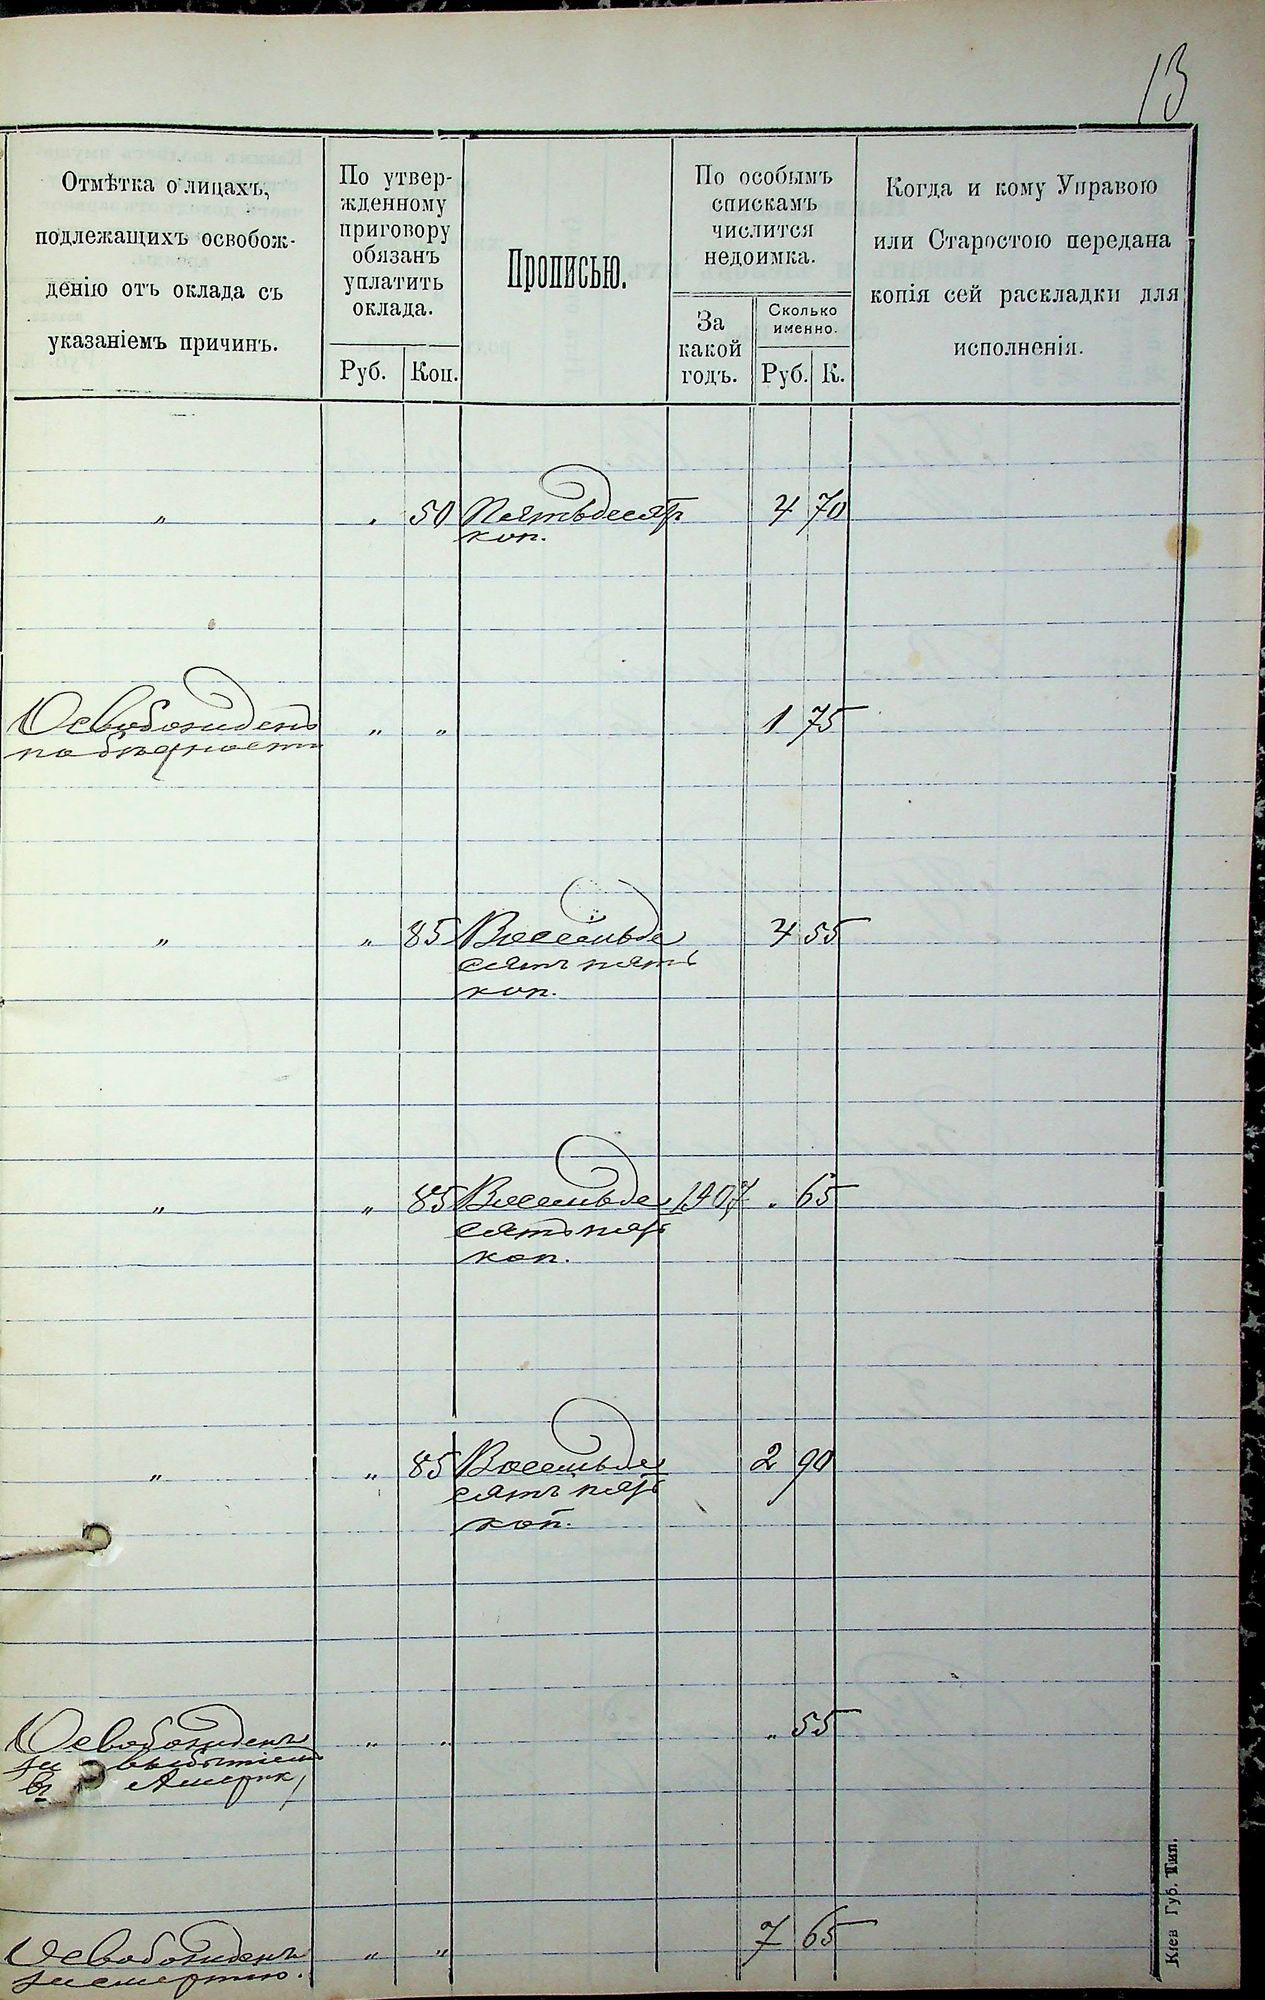 13
Отмѣтка о лицахъ,
подлежащихъ освобож-
денію отъ оклада съ
указаніемъ причинъ.
По утвер-
жденному
приговору
обязанъ
уплатить
оклада.
Руб. Коп.
Прописью.
По особымъ
спискамъ
числится
недоимка.
За
какой
годъ.
Сколько
именно.
Руб. К.
Когда и кому Управою
или Старостою передана
копія сей раскладки для
исполненія.
„ . 50 Пятьдесят 4 70
коп.
Освобожденъ „ „ 1 75
по бѣдности
„ „ 85 Восемьде 4 55
сятъ пять
коп.
„ „ 85 Восемьде 1907 . 65
сятъ пять
коп.
„ „ 85 Восемьде 2 90
сятъ пять
коп.
Освобожденъ „ „ „ 55
за выбытіемъ
въ Америк
Освобожденъ „ „ 7 65
за смертію.
Кіев Губ. Тип.